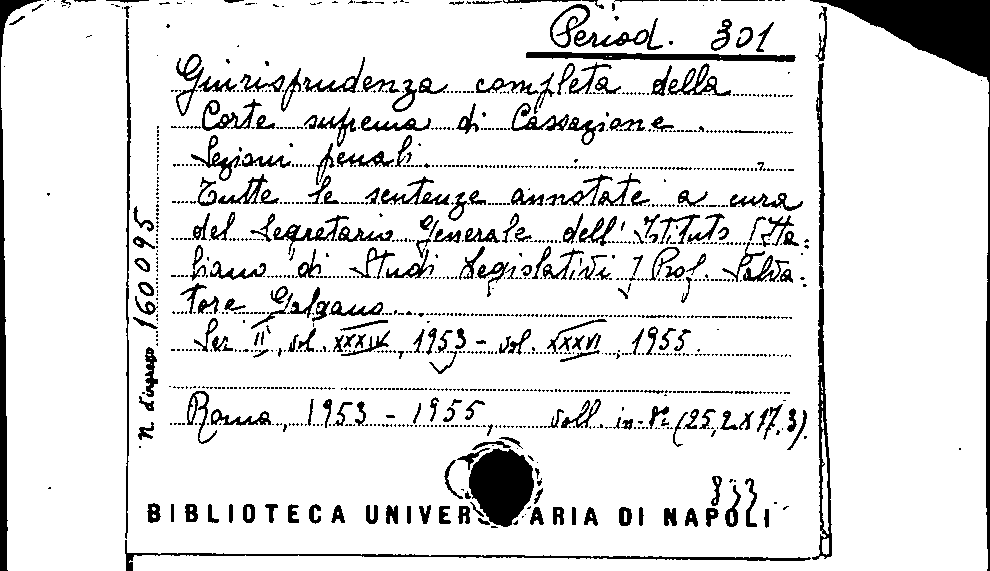 Period. 301
Giurisprudenza completa della
Corte suprema di Cassazione.
Sezioni penali.
Tutte le sentenze annotate a cura
del Segretario Generale dell'Istituto [Ita:
liano di Studi Legislativi] Prof. Salva:
tore Galgano...
Ser. II, vol. XXXIV, 1953 - vol. XXXVI, 1955.
Roma, 1953 - 1955, voll. in-8º (25,2 X 17,3).
n. d'ingresso 160095
BIBLIOTECA UNIVER ARIA DI NAPOLI